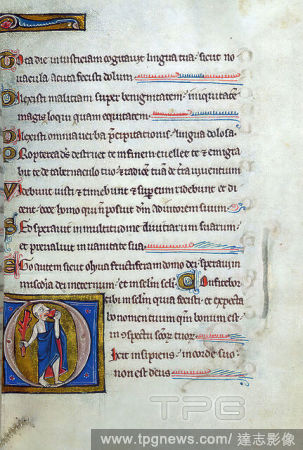 Tota die iniusticiam cogitauit lingua tua· sicut no
uacula acuta fecisti dolum·
Dilexisti maliciam super benignitatem· iniquitatē
magis loqui quam equitatem·
Dilexisti omnia uerba p̄cipitationis· lingua dolosa·
Propterea ds̄ destruet te in finem euellet te ⁊ emigra
bit te de tabernaculo tuo· ⁊ radicē tuā de t̄ra uiuentium
Videbunt iusti ⁊ timebunt ⁊ sup̄ eum ridebunt et di
cent· ecce homo qui n̄ posuit dm̄ adiutorem suum·
Sed sperauit in multitudine diuitiarum suarum·
et preualuit in uanitate sua·
Ego autem sicut oliua fructifera in domo dei· speraui in
misc̄dia dei in eternum· et in sclm̄ scli· Confitebor
tibi in sclm̄ quia fecisti· et expecta
bo nomen tuum qm̄ bonum est·
in ɔspectu sc̄oꝝ tuoꝝ·
Dixit insipiens· in corde suo·
non est deus·
TPG
www.tpgnews.com / 達志影像